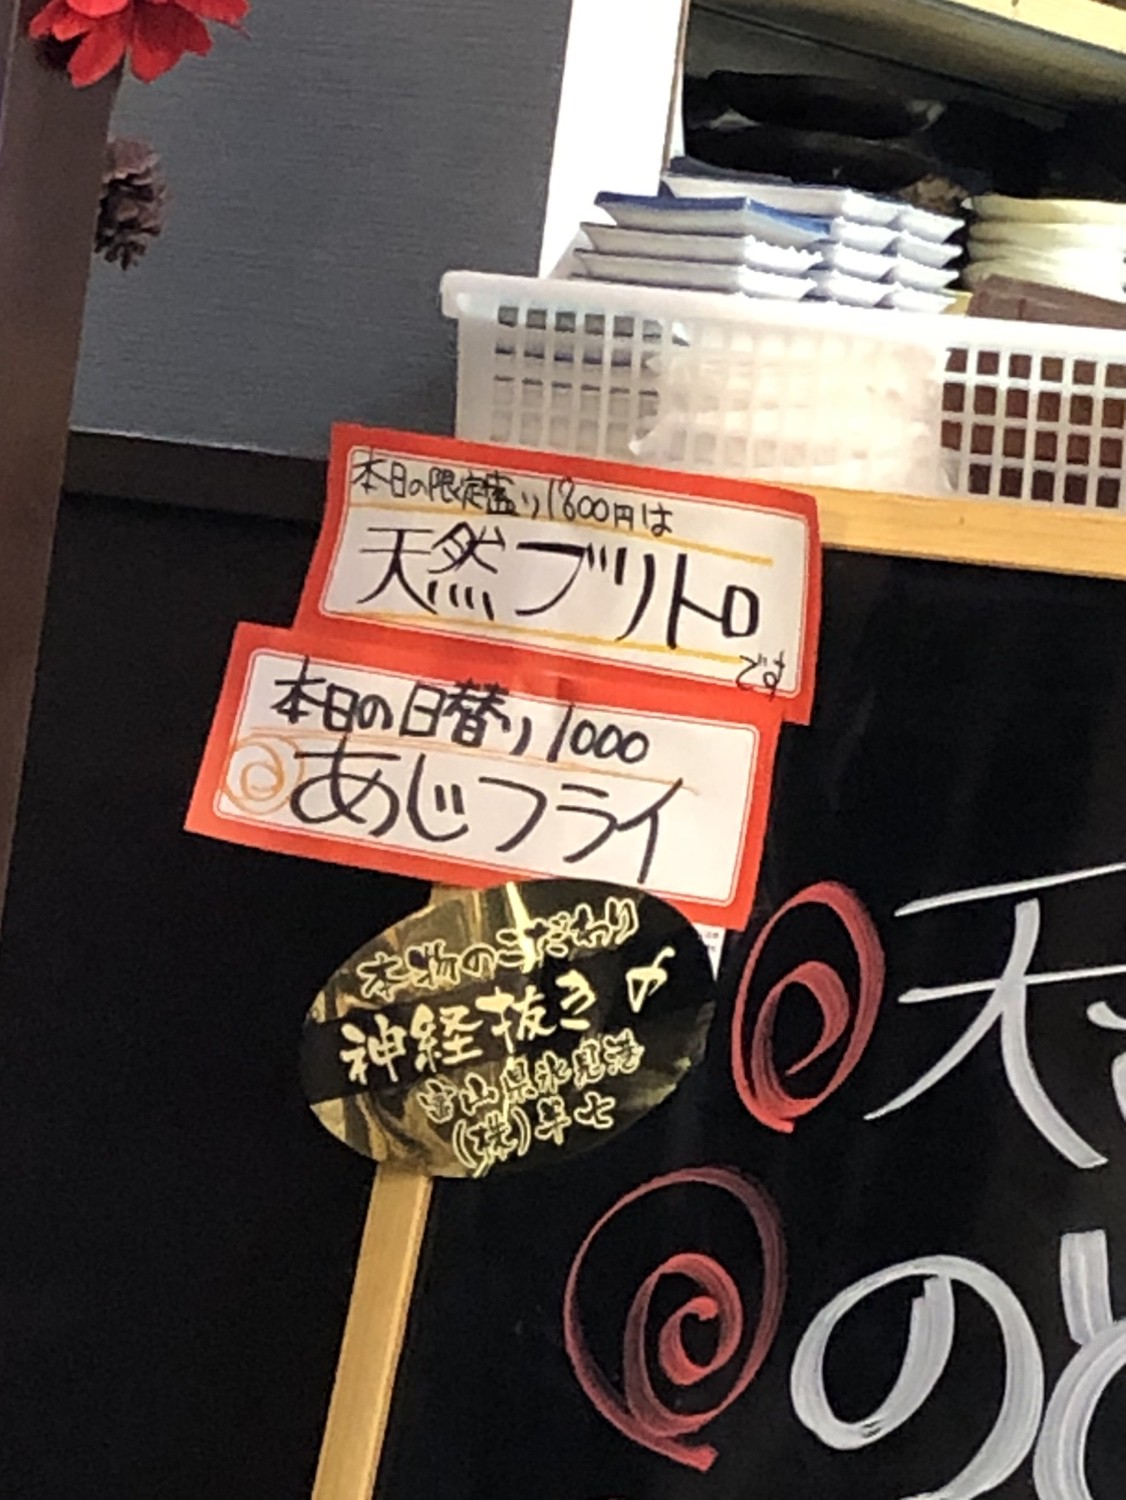 本日の限定盛り1800円は
天然ブリトロ
です
本日の日替り1000
あじフライ
本物のこだわり
神経抜き〆
富山県氷見港
(株)
天
のど